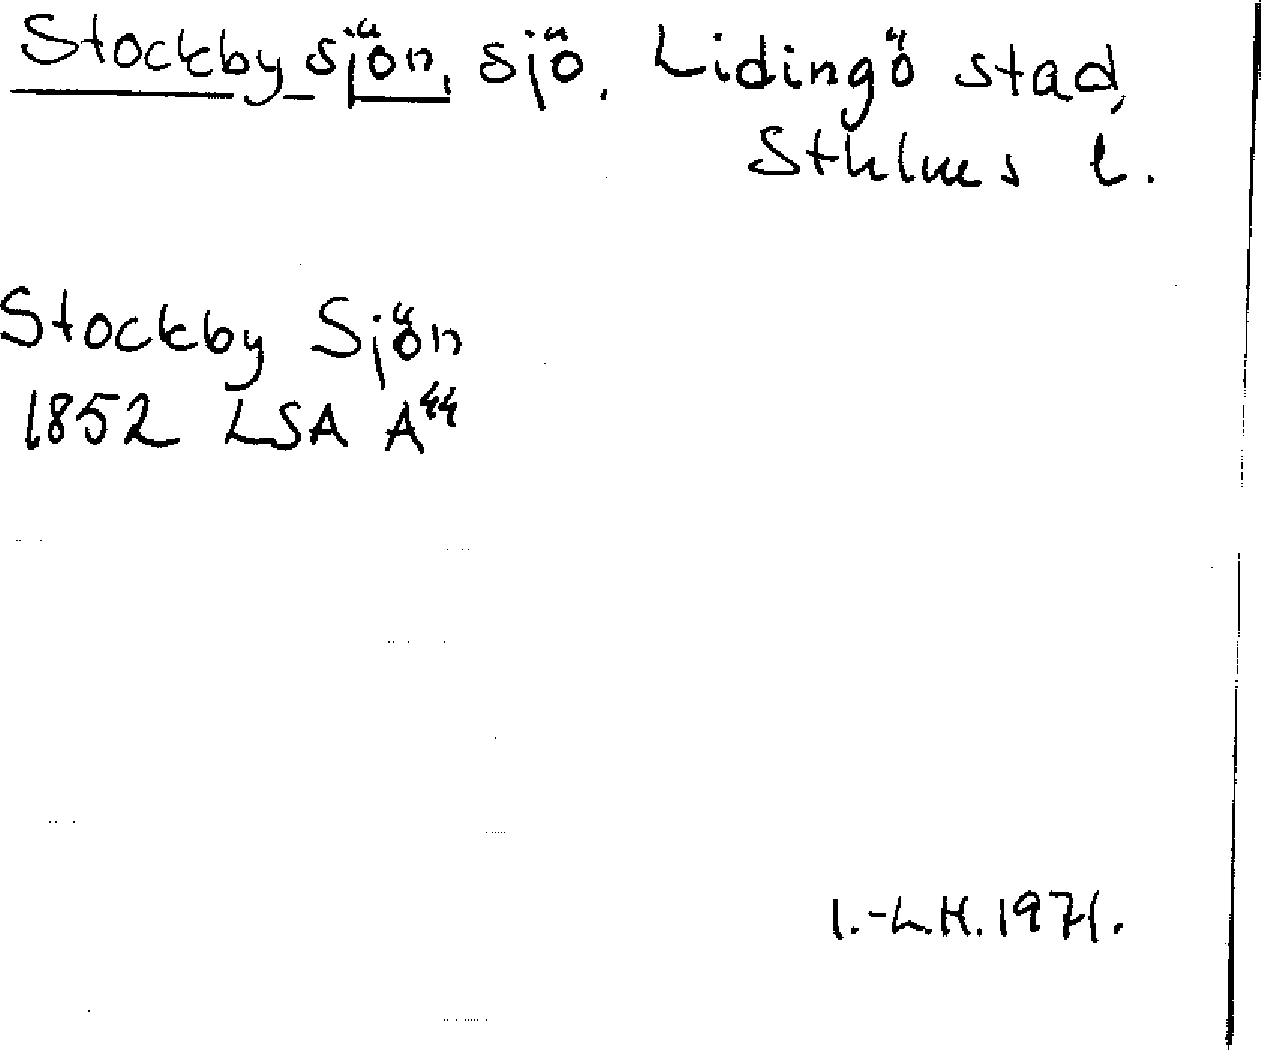 Stockbysjön, sjö. Lidingö stad,
Sthlms l.
Stockby Sjön
1852 LSA A44
I.-L.H. 1971.